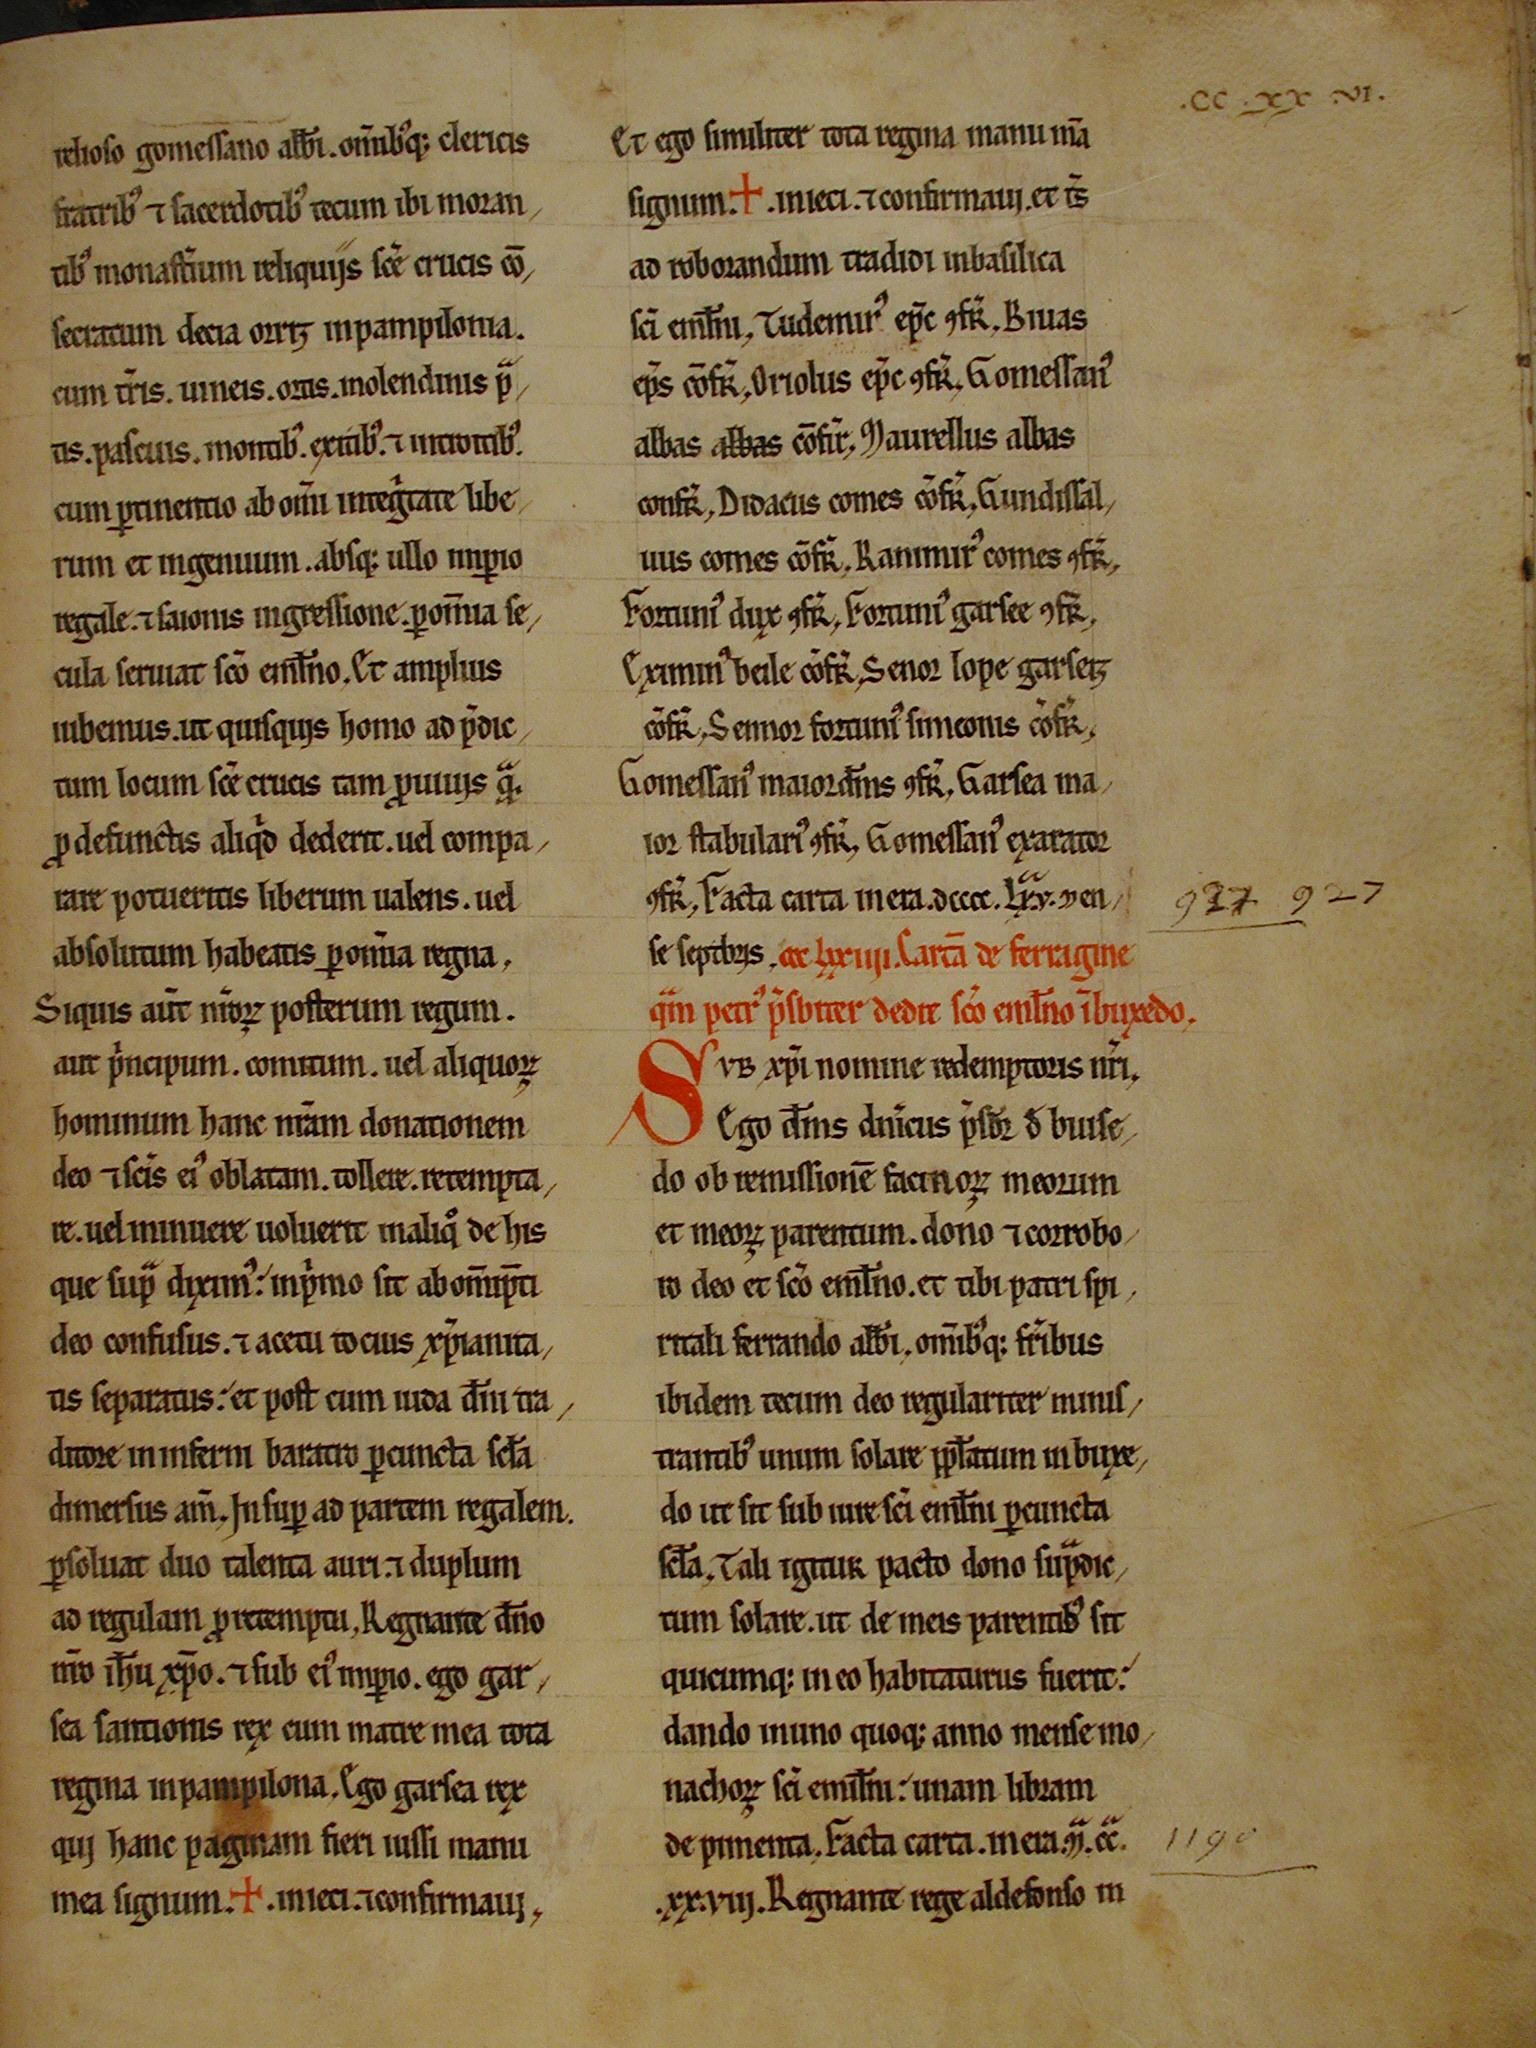 .CC .XX .VI.
relioso gomessano abb̄i. om̄ib⁹q; clericis
fratrib⁹ ⁊ sacerdotib⁹ tecum ibi moran,
tib⁹ monast̄ium reliquijs sc̄e crucis cō,
secratum decia oritꝫ inpampilonia.
cum t̄ris. uineis. ortis. molendinis p̄,
tis. pascuis. montib⁹. exitib⁹. ⁊ introitib⁹.
cum ꝑtinentio ab om̄i inteḡtate libe,
rum et ingenuum. absq; ullo imꝑio
regale. ⁊ saionis ingressione. ꝑ om̄ia se,
cula seruiat sc̄o emil̄no. Et amplius
iubemus. ut quisquis homo ad p̄dic,
tum locum sc̄e crucis tam ꝓ uiuis q̄.
ꝓ defunctis aliq̄d dederit. uel compa,
rare potueritis liberum ualens. uel
absolutum habeatis ꝑ om̄ia regna.
Siquis aūt nr̄oꝝ posterum regum.
aut p̄ncipum. comitum. uel aliquoꝝ
hominum hanc nr̄am donationem
deo ⁊ sc̄is ei⁹ oblatam. tollere. retempta,
re. uel minuere uoluerit in aliq̊ de his
que sup̄ dixim⁹: inp̄mo sit ab om̄ip̄ti
deo confusus. ⁊ a cetu tocius xp̄ianita,
tis separatus: et post cum iuda dn̄i tra,
ditore in inferni baratro ꝑ cuncta sc̄la
dimersus am̄. Insuꝑ ad partem regalem.
ꝑsoluat duo talenta auri. ⁊ duplum
ad regulam ꝓ retemptu. Regnante dn̄o
nr̄o ih̄u xp̄o. ⁊ sub ei⁹ imꝑio. ego gar,
sea santionis rex cum matre mea tota
regina in pampilona. Ego garsea rex
qui hanc paginam fieri iussi manu
mea signum. + .inieci. ⁊ confirmaui,
Et ego similiter tota regina manu m̄a
signum. + .inieci. ⁊ confirmaui. et t̄s
ad roborandum tradidi in basilica
sc̄i emil̄ni, Tudemir⁹ ep̄c ꝯfr̄, Biuas
ep̄s cōfr̄, Oriolus ep̄c ꝯfr̄, Gomessan⁹
abbas abbas cōfir̄, Maurellus abbas
confr̄, Didacus comes cōfr̄, Gundissal,
uus comes cōfr̄, Ranimir⁹ comes ꝯfr̄,
Fortuni⁹ dux ꝯfr̄, Fortuni⁹ garsee ꝯfr̄,
Eximin⁹ beile cōfr̄, Senor lope garseiꝫ
cōfr̄, Sennor fortuni⁹ simeonis cōfr̄,
Gomessan⁹ maiordom̄s ꝯfr̄, Garsea ma,
ior stabulari⁹ ꝯfr̄, Gomessan⁹ exarator
ꝯfr̄, Facta carta in era. dcccc. Lx̄v. Men,
937 927
se septbrijs, cc lxxiiii. Carta de ferragine
qm̄ petr⁹ p̄sbiter dedit sc̄o emil̄no ī buxedo.
SVB xp̄i nomine redemptoris nr̄i.
Ego dom̄s dn̄icus p̄sbr̄ đ buise,
do ob remissionē facinoꝝ meorum
et meoꝝ parentum. dono ⁊ corrobo,
ro deo et sc̄o emil̄no. et tibi patri spi,
ritali ferrando abb̄i. om̄ib⁹q; fr̄ibus
ibidem tecum deo regulariter minis,
trantib⁹ unum solare pp̄latum in buxe,
do ut sit sub iure sc̄i emil̄ni ꝑ cuncta
sc̄la. Tali igitur pacto dono sup̄dic,
tum solare. ut de meis parentib⁹ sit
quicumq; in eo habitaturus fuerit:
dando inuno quoq; anno mense mo,
nachoꝝ sc̄i emil̄ni: unam libram
de pimenta. Facta carta. in era. M̄. cc̄.
1190
.xx.viii. Regnante rege aldefonso in